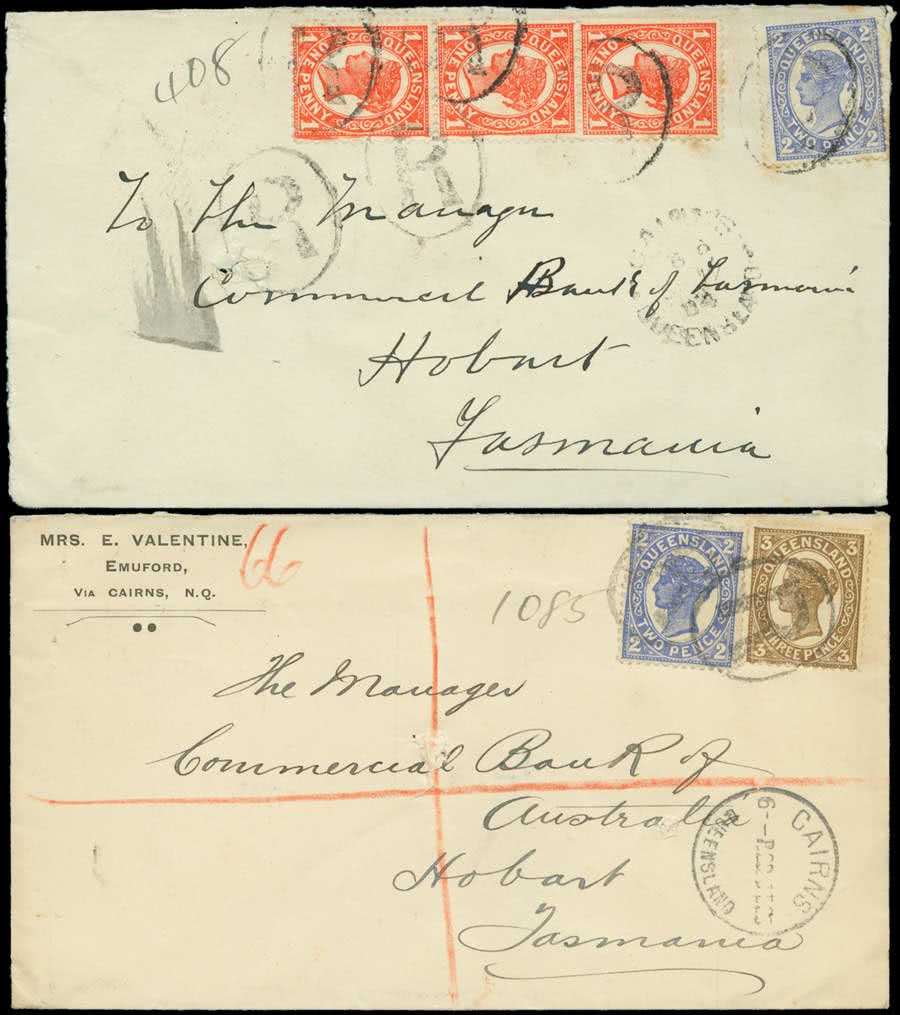 408
1 QUEENSLAND 1
ONE PENNY
1 QUEENSLAND 1
ONE PENNY
1 QUEENSLAND 1
ONE PENNY
2 QUEENSLAND 2
2 TWO PENCE 2
R
R
To The Manager
Commercial Bank of Tasmania
Hobart
Tasmania
QUEENSLAND
MRS. E. VALENTINE,
EMUFORD,
VIA CAIRNS, N.Q.
66
1085
2 QUEENSLAND 2
2 TWO PENCE 2
3 QUEENSLAND 3
3 THREE PENCE 3
The Manager
Commercial Bank of
Australia
Hobart
Tasmania
CAIRNS
QUEENSLAND